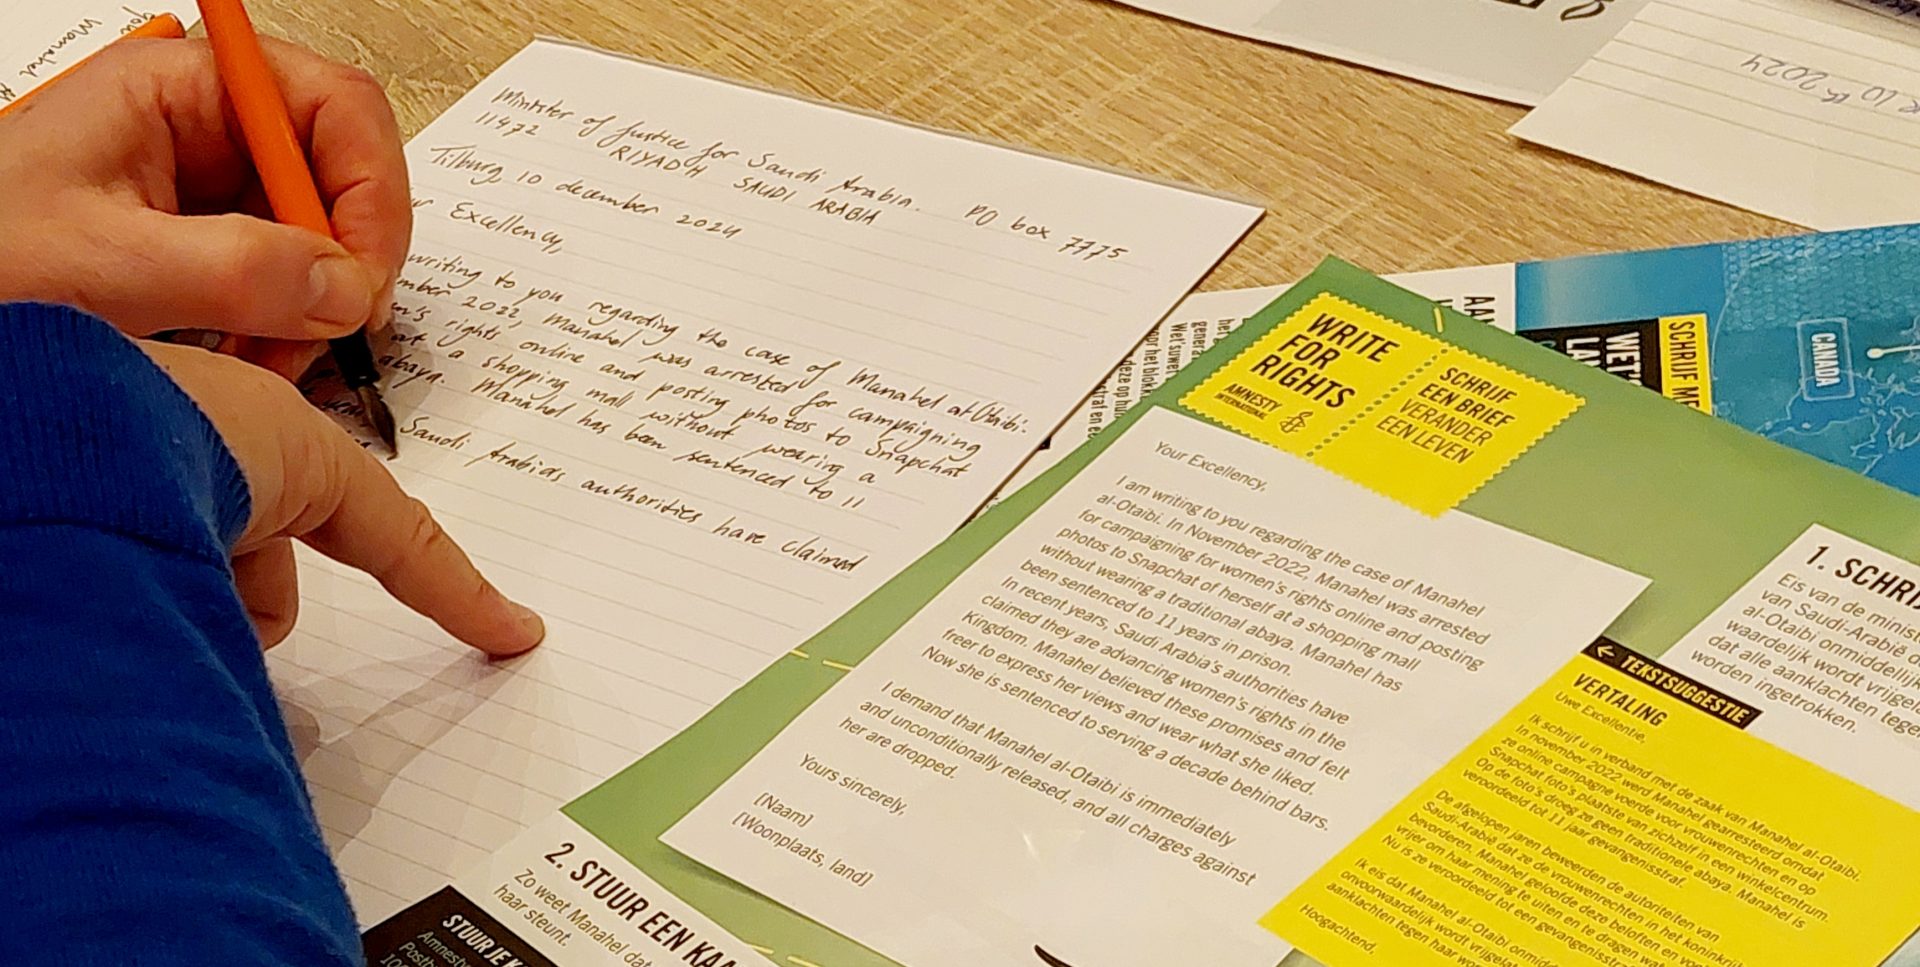 you
Manahel Al
Minister of Justice for Saudi Arabia. PO box 7775
11472 RIYADH SAUDI ARABIA
Tilburg 10 december 2024
Excellency,
writing to you regarding the case of Manahel al-Otaibi.
mber 2022, Manahel was arrested for campaigning
en's rights online and posting photos to Snapchat
at a shopping mall without wearing a
abaya. Manahel has been sentenced to 11
Saudi Arabias authorities have claimed
10 2024
WRITE
FOR
RIGHTS
AMNESTY
INTERNATIONAL
SCHRIJF
EEN BRIEF
VERANDER
EEN LEVEN
Your Excellency,
I am writing to you regarding the case of Manahel
al-Otaibi. In November 2022, Manahel was arrested
for campaigning for women's rights online and posting
photos to Snapchat of herself at a shopping mall
without wearing a traditional abaya. Manahel has
been sentenced to 11 years in prison.
In recent years, Saudi Arabia's authorities have
claimed they are advancing women's rights in the
Kingdom. Manahel believed these promises and felt
freer to express her views and wear what she liked.
Now she is sentenced to serving a decade behind bars.
I demand that Manahel al-Otaibi is immediately
and unconditionally released, and all charges against
her are dropped.
Yours sincerely,
[Naam]
[Woonplaats, land]
SCHRIJF ME
WET'S
LA
CANADA
1. SCHRIJ
Eis van de minist
van Saudi-Arabië d
al-Otaibi onmiddellijk
waardelijk wordt vrijgel
dat alle aanklachten tegen
worden ingetrokken.
← TEKSTSUGGESTIE
VERTALING
Uwe Excellentie,
Ik schrijf u in verband met de zaak van Manahel al-Otaibi.
In november 2022 werd Manahel gearresteerd omdat
ze online campagne voerde voor vrouwenrechten en op
Snapchat foto's plaatste van zichzelf in een winkelcentrum.
Op de foto's droeg ze geen traditionele abaya. Manahel is
veroordeeld tot 11 jaar gevangenisstraf.
De afgelopen jaren beweerden de autoriteiten van
Saudi-Arabië dat ze de vrouwenrechten in het koninkrij
bevorderen. Manahel geloofde deze beloften en voel
vrijer om haar mening te uiten en te dragen wat
Nu is ze veroordeeld tot een gevangenisstra
Ik eis dat Manahel al-Otaibi onmidd
onvoorwaardelijk wordt vrijgelat
aanklachten tegen haar wor
Hoogachtend,
2. STUUR EEN KAA
Zo weet Manahel dat
haar steunt.
STUUR JE K
Amnest
Postb